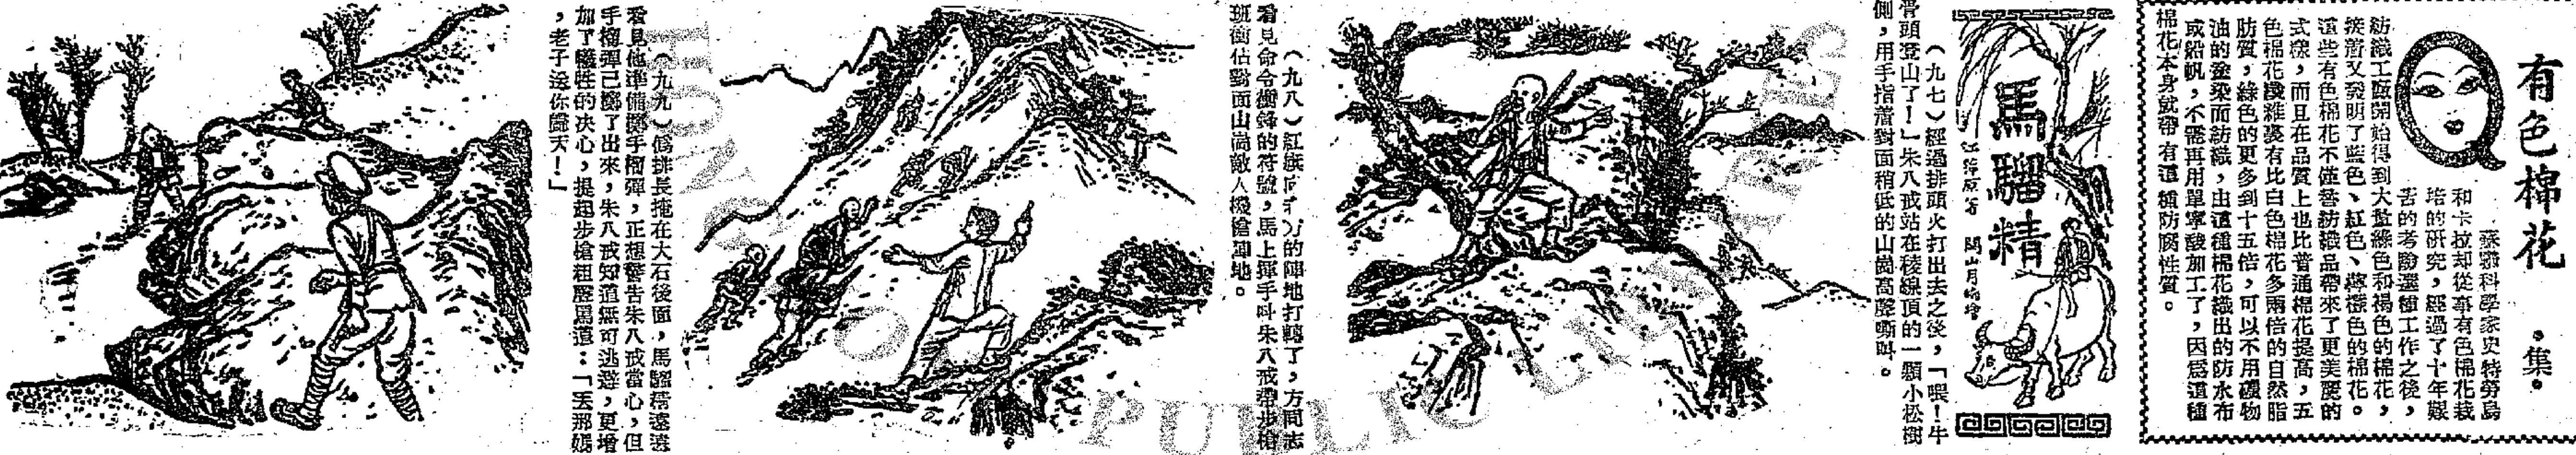 有色棉花
·集·
蘇聯科學家史特勞烏
和卡拉却從事有色棉花栽
培的研究，經過了十年艱
苦的考驗選種工作之後，
紡織工廠開始得到大批綠色和褐色的棉花，
接着又發明了藍色、紅色、
這些有色棉花不僅替紡織品帶來了更美麗的
式樣，而且在品質上也比普通棉花提高，五
色棉花有比白色棉花多兩倍的自然脂
肪質，綠色的更多到十五倍，可以不用礦物
油的塗染而紡織，由這種棉花織出的防水布
或船帆，不需再用單寧酸加工了，因爲這種
棉花本身就帶有這種防腐性質。
馬騮精
江萍原著
關山月
（九七）經過排頭火打出去之後，「喂！牛
骨頭登山了！」朱八戒站在稜線頂的一顆小松樹
側，用手指着對面稍低的山崗高聲嘶叫。
（九八）紅旗向的陣地打轉了，方同志
看見命令衝鋒的符號，馬上揮手叫朱八戒帶步槍
班衝佔對面山崗敵人機槍陣地。
（九九）僞排長掩在大石後面，馬騮精遠遠
看見他準備擲手榴彈，正想警告朱八戒當心，但
手榴彈已擲了出來，朱八戒知道無可逃避，更增
加了犧牲的決心，提起步槍粗聲罵道：「丟那媽
，老子送你歸天！」
HONG KONG PUBLIC LIBRARIES